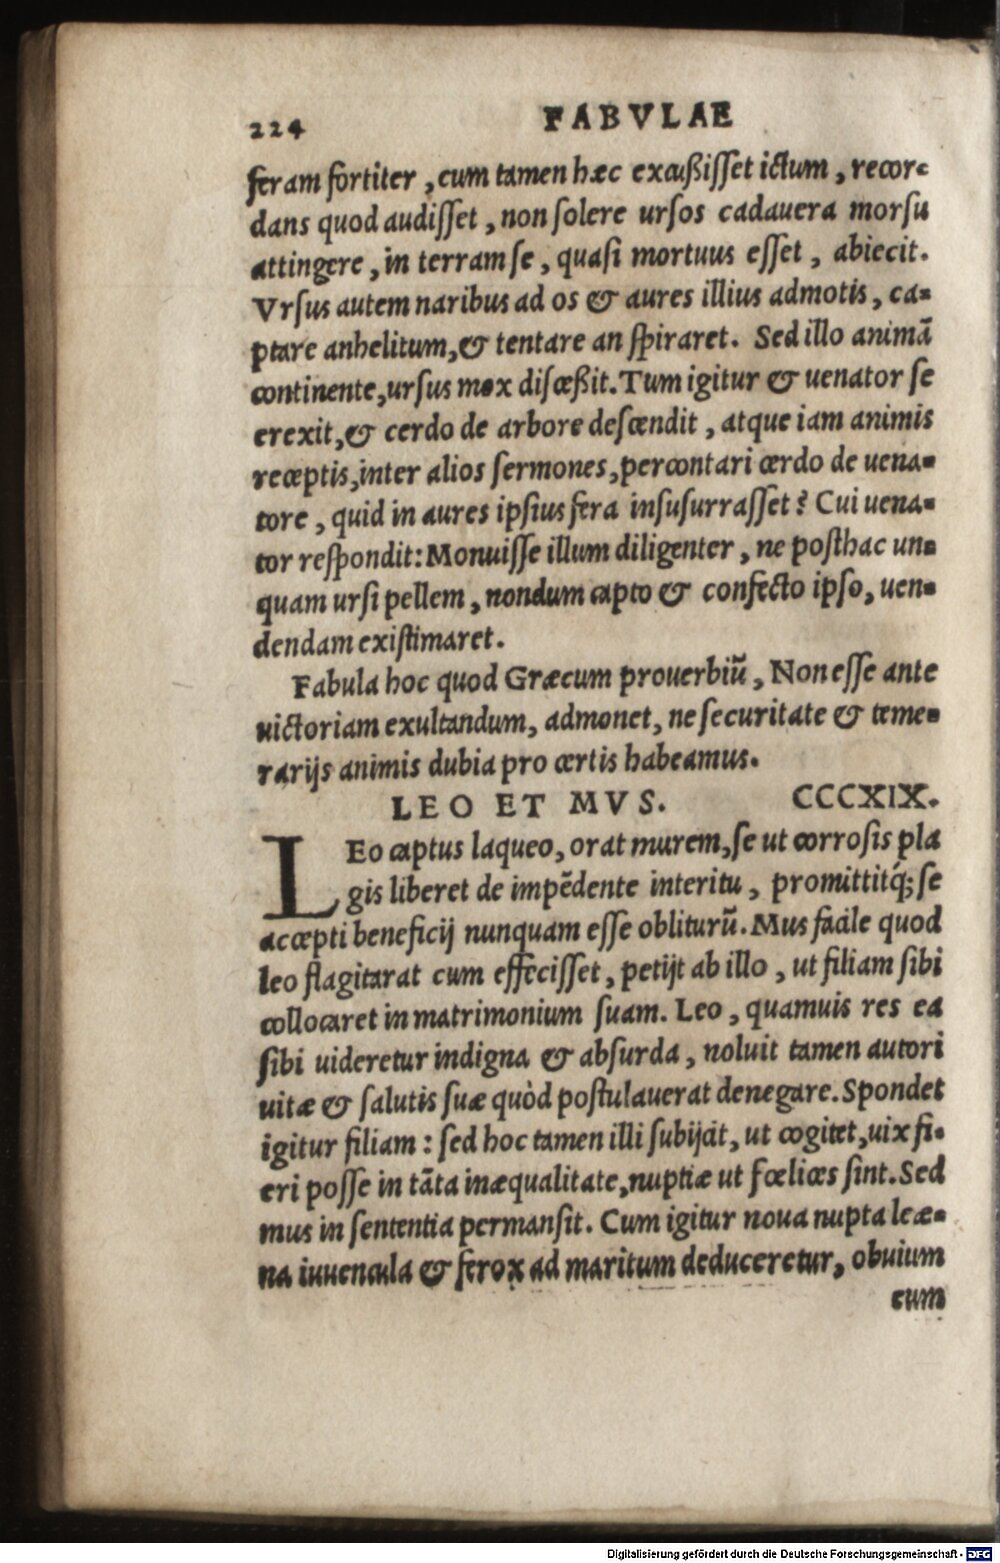 224 FABVLAE
feram fortiter, cum tamen hæc excußisset ictum, recor-
dans quod audisset, non solere ursos cadauera morsu
attingere, in terram se, quasi mortuus esset, abiecit.
Vrsus autem naribus ad os & aures illius admotis, ca-
ptare anhelitum, & tentare an spiraret. Sed illo animã
continente, ursus mox disceßit. Tum igitur & uenator se
erexit, & cerdo de arbore descendit, atque iam animis
receptis, inter alios sermones, percontari cerdo de uena-
tore, quid in aures ipsius fera insusurrasset? Cui uena-
tor respondit: Monuisse illum diligenter, ne posthac un-
quam ursi pellem, nondum capto & confecto ipso, uen-
dendam existimaret.
Fabula hoc quod Græcum prouerbiũ, Non esse ante
uictoriam exultandum, admonet, ne securitate & teme-
rarijs animis dubia pro certis habeamus.
LEO ET MVS. CCCXIX.
LEo captus laqueo, orat murem, se ut corrosis pla
gis liberet de impẽdente interitu, promittitq́; se
accepti beneficij nunquam esse obliturũ. Mus facile quod
leo flagitarat cum effecisset, petijt ab illo, ut filiam sibi
collocaret in matrimonium suam. Leo, quamuis res ea
sibi uideretur indigna & absurda, noluit tamen autori
uitæ & salutis suæ quòd postulauerat denegare. Spondet
igitur filiam: sed hoc tamen illi subijcit, ut cogitet, uix fi-
eri posse in tãta inæqualitate, nuptiæ ut fœlices sint. Sed
mus in sententia permansit. Cum igitur noua nupta leæ-
na iuuencula & ferox ad maritum deduceretur, obuium
cum
Digitalisierung gefördert durch die Deutsche Forschungsgemeinschaft - DFG